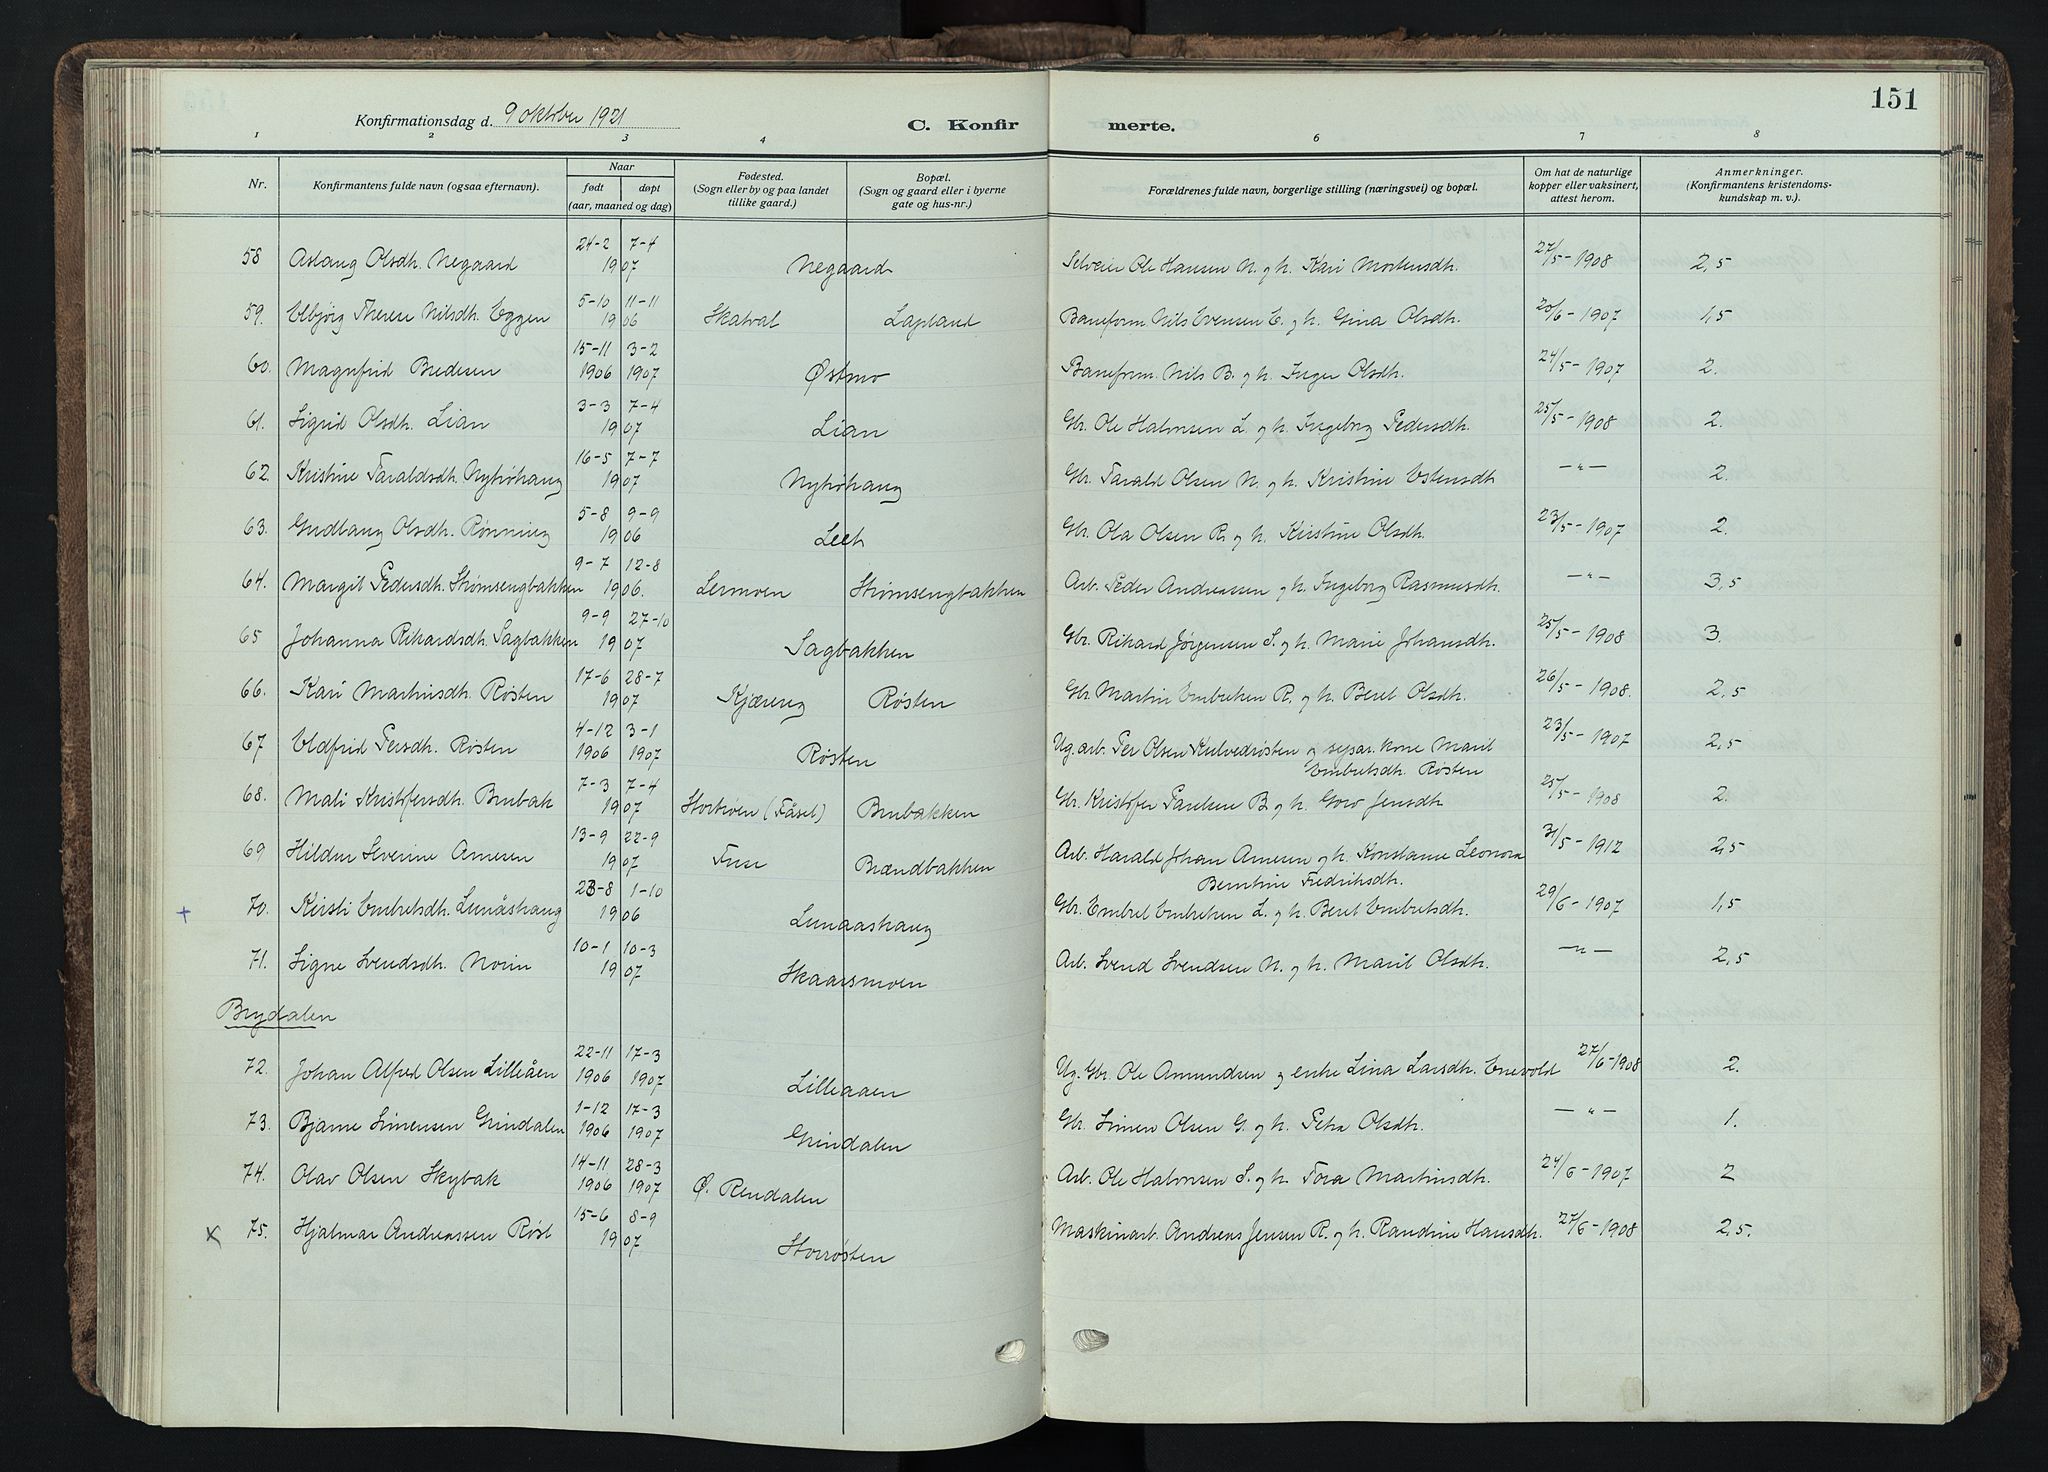 151
Konfirmationsdag d. 9 oktober 1921
C. Konfirmerte.
1 2 3 4 5 6 7 8
Nr. Konfirmantens fulde navn (ogsaa efternavn). Naar født døpt (aar, maaned og dag) Fødested. (Sogn eller by og paa landet tillike gaard.) Bopæl. (Sogn og gaard eller i byerne gate og hus-nr.) Forældrenes fulde navn, borgerlige stilling (næringsvei) og bopæl. Om hat de naturlige kopper eller vaksinert, attest herom. Anmerkninger. (Konfirmantens kristendoms-kundskap m. v.).
58 Aslaug Olsdh. Negaard 24-2 7-4 1907 Negaard Selveier Ole Hansen N. og h. Kari Mortensdh. 27/5-1908 2,5
59. Therese Nilsdh. Eggen 5-10 11-11 1906 Skatval Lapland Baneform. Nils Evensen E. og h. Gina Olsdh. 20/6-1907 1,5
60. Magnfrid Bredesen 15-11 1906 3-2 1907 Østmo Baneform. Nils B. og h. Inger Olsdh. 24/5-1907 2.
61. Sigrid Olsdh. Lian 3-3 7-4 1907 Lian Gbr. Ole Halvorsen L. og h. Ingeborg Pedersdh. 25/5-1908 2.
62. Kristine Taraldsdh. Nytrøhaug 16-5 7-7 1907 Nytrøhaug Gbr. Tarald Olsen N. og h. Kristine Estensdh —"— 2.
63. Gudlaug Olsdh. Rønning 5-8 9-9 1906 Leet Gbr. Ola Olsen R. og h. Kristine Olsdh. 23/5-1907 2.
64. Margit Pedersdh. Strømsengbakken 9-7 12-8 1906. Lermoen Strømsengbakken Arb. Peder Andreassen og h. Ingeborg Rasmusdh. —"— 3,5
65 Johanna Rikardsdh. Sagbakken 9-9 27-10 1907 Sagbakken Gbr. Rikard Jørgensen S. og h. Marie Johansdh. 25/5-1908 3.
66. Kari Martinsdh. Røsten 17-6 28-7 1907 Kjæreng Røsten Gbr. Martin Embretsen R. og h. Beret Olsdh. 26/5-1908. 2,5
67 Oldfrid Persdh. Røsten 4-12 1906 3-1 1907 Røsten Ug. arb. Per Olsen Kulvedrøsten og separ. kone Marit Embretsdh. Røsten 23/5-1907 2,5
68. Mali Kristofersdh. Brubak 7-3 7-4 1907 (Fåset) Brubakken Gbr. Kristofer Paulsen B og h. Goro Jensdh 25/5-1908 2.
69 Hildur Severine Arnesen 13-9 22-9 1907 Brændbakken Arb. Harald Johan Arnesen og h. Konstanse Leonora Berntine Fredriksdh. 31/5-1912 2,5
+ 70. Kirsti Embretsdh. Lunåshaug 23-8 1-10 1906 Lunaashaug Gbr. Embret Embretsen L. og h. Beret Embretsdh. 29/6-1907 1,5
71. Signe Svendsdh. Morin 10-1 10-3 1907 Skaarsmoen Arb. Svend Svendsen N. og h. Marit Olsdh. —"— 2,5
Brydalen
72. Johan Alfred Olsen Lilleåen 22-11 1906 17-3 1907 Lilleaaen Ug. Gbr. Ole Amundsen og enke Lina Larsdh. Enevold 27/6-1908 2.
73. Bjarne Simensen Grindalen 1-12 1906 17-3 1907 Grindalen Gbr. Simen Olsen G. og h. Petra Olsdh. —"— 1.
74. Olav Olsen Skybak 14-11 1906 28-3 1907 Ø. Rendalen Arb. Ole Halvorsen S. og h. Tora Martinsdh. 24/6-1907 2
x 75. Hjalmar Andreassen Røst 15-6 8-9 1907 Storrøsten Maskinarb. Andreas Jensen R. og h. Randine Hansdh. 27/6-1908 2,5.